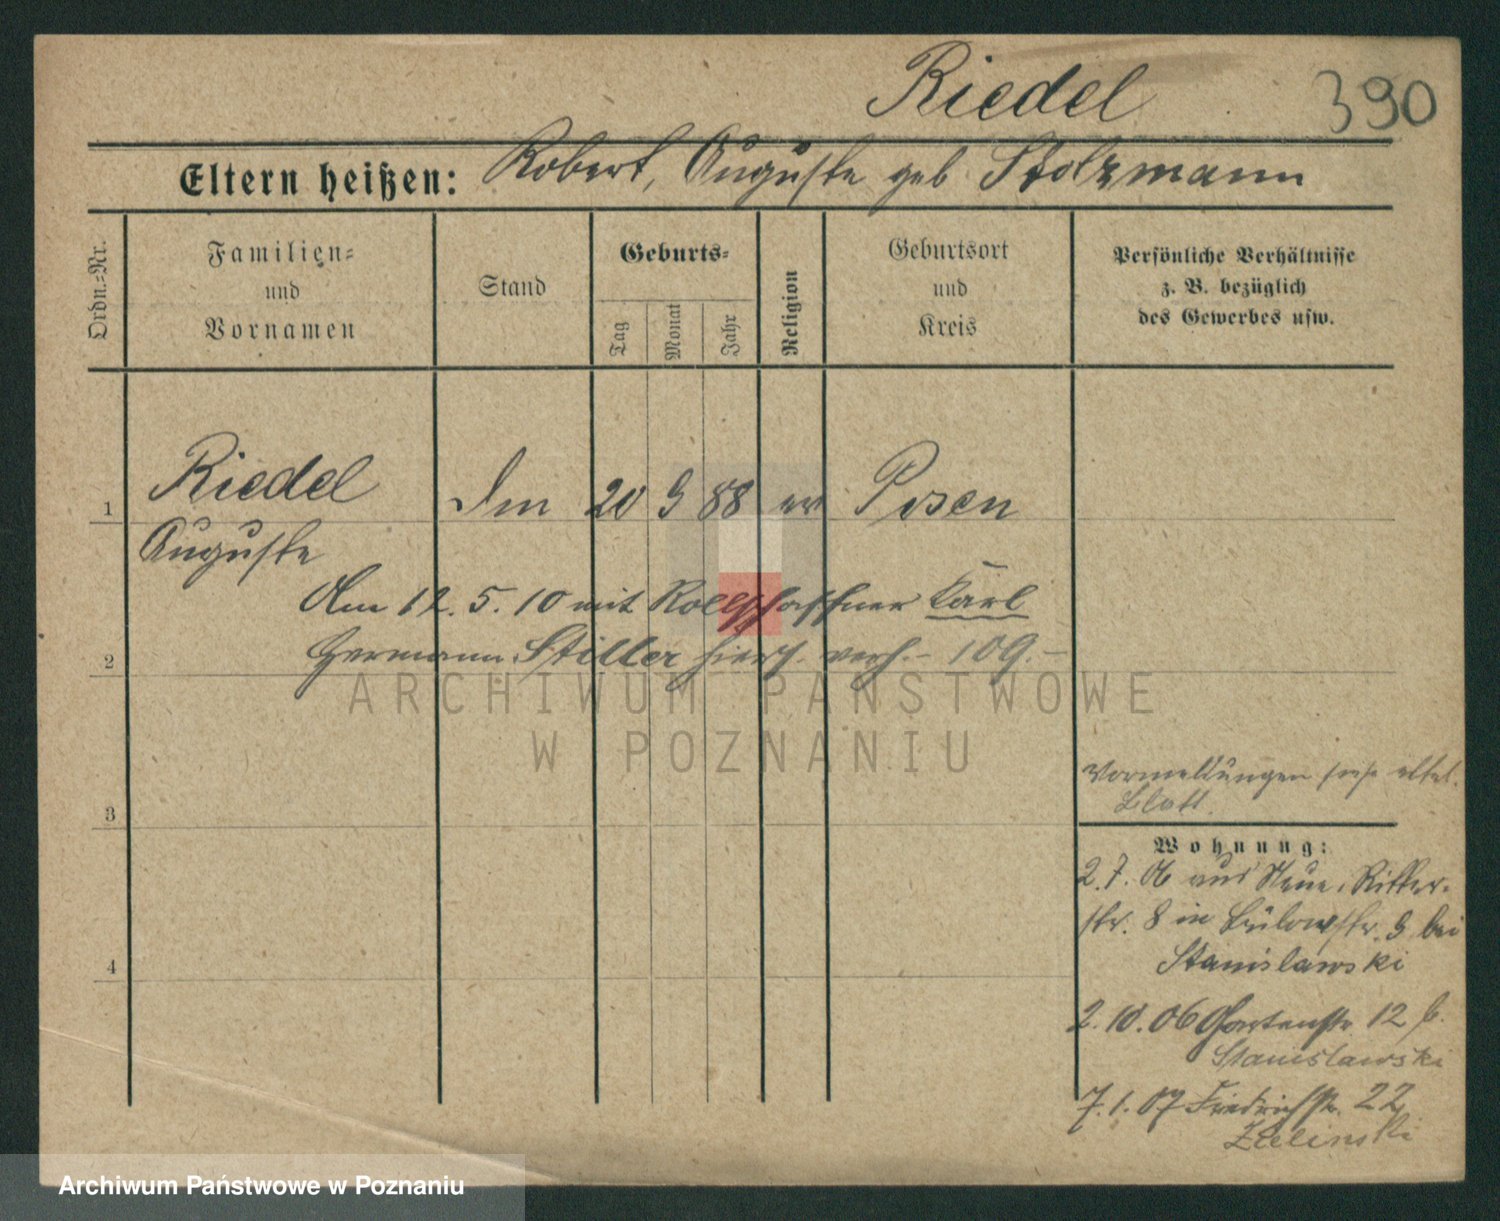 Riedel 390
Eltern heißen: Robert, Auguste geb Stolzmann
Ordn.=Nr.
Familien=
und
Vornamen
Stand
Geburts=
Tag
Monat
Jahr
Religion
Geburtsort
und
Kreis
Persönliche Verhältnisse
z. B. bezüglich
des Gewerbes usw.
1 Riedel 20 9 88 ev Posen
Auguste
Am 12. 5. 10 mit Rollschaffner Karl
2 Hermann Stiller hiers. verh. – 109. –
ARCHIWUM PAŃSTWOWE
W POZNANIU
Vormeldungen siehe
Blatt.
3
Wohnung:
2. 7. 06 aus Neue. Ritter-
str. 8 in Bülowstr. 9 bei
4 Stanislawski
2. 10. 06 Gartenstr 12 b.
Stanislawski
7. 1. 07 Friedrichstr. 22
Zielinski
Archiwum Państwowe w Poznaniu